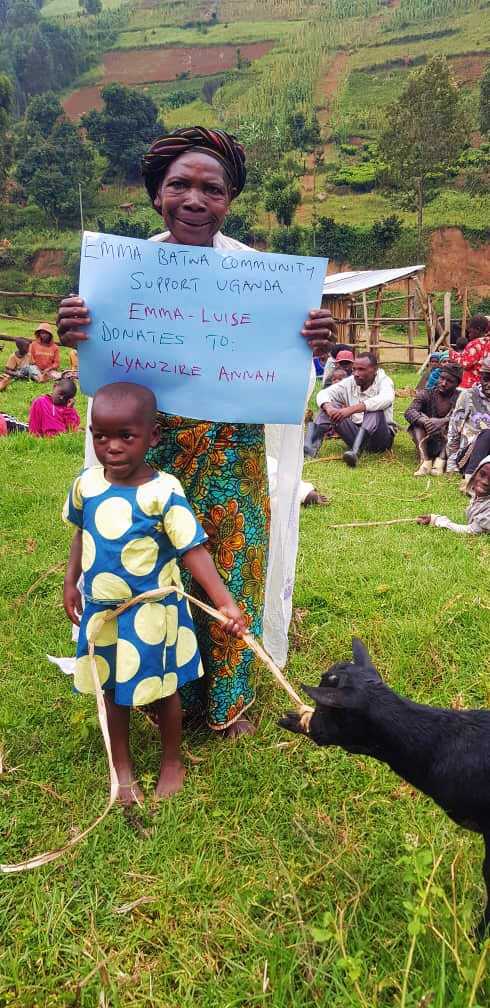 EMMA BATWA COMMUNITY
SUPPORT UGANDA
EMMA-LUISE
DONATES TO:
KYANZIRE ANNAH